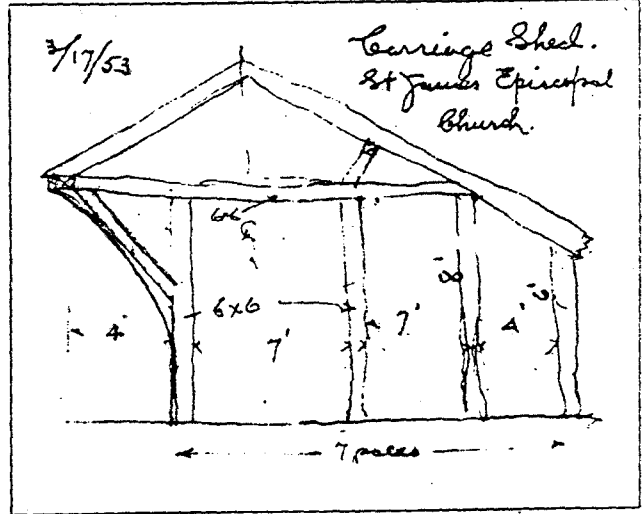 3/17/53
Carriage Shed.
St James Episcopal
Church.
6x6
8'
6'
6x6
4'
7'
7'
4'
7 paces